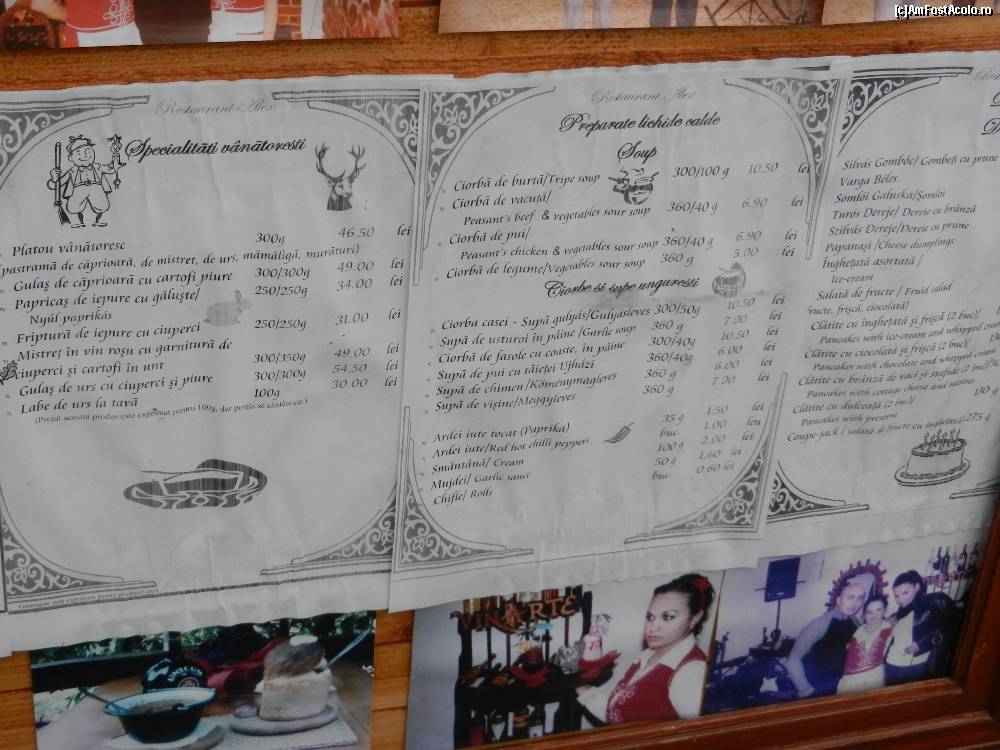 [c]AmFostAcolo.ro
Restaurant Alex
Specialităti vânătoresti
Platou vânătoresc 300g 46.50 lei
(pastramă de căprioară, de mistreț, de urs, mămăligă, murături)
Gulaș de căprioară cu cartofi piure 300/300g 49.00 lei
Papricaș de iepure cu găluște/ 250/250g 34.00 lei
Nyúl paprikás
Friptură de iepure cu ciuperci 250/250g 31.00 lei
Mistreț în vin roșu cu garnitură de
ciuperci și cartofi în unt 300/350g 49.00 lei
Gulaș de urs cu ciuperci și piure 300/300g 54.50 lei
Labe de urs la tavă 100g 30.00 lei
(Prețul acestui produs este exprimat pentru 100g, dar porția se cântărește)
Gramajele sunt exprimate pentru produsul finit
Restaurant Alex
Preparate lichide calde
Soup
Ciorbă de burtă/Tripe soup 300/100 g 10.50 lei
Ciorbă de vacuță/
Peasant's beef & vegetables sour soup 360/40 g 6.90 lei
Ciorbă de pui/
Peasant's chicken & vegetables sour soup 360/40 g 6.90 lei
Ciorbă de legume/Vegetables sour soup 360 g 5.00 lei
Ciorbe si supe unguresti
Ciorba casei - Supă gulyás/Gulyásleves 300/50g 10.50 lei
Supă de usturoi în pâine /Garlic soup 360 g 7.00 lei
Ciorbă de fasole cu coaste, în pâine 300/40g 10.50 lei
Supă de pui cu tăieței Ujházi 360/40g 6.00 lei
Supă de chimen/Köménymagleves 360 g 6.00 lei
Supă de vișine/Meggyleves 360 g 7.00 lei
Ardei iute tocat (Paprika) 35 g 1.50 lei
Ardei iute/Red hot chilli pepper buc. 1.00 leu
Smântână/ Cream 100 g 2.00 lei
Mujdei/ Garlic sauce 50 g 1.60 lei
Chifle/ Rolls buc. 0.60 lei
Silvás Gombóc/ Gomboți cu prune
Varga Béles
Somlói Galuska/Somlói
Turós Dereje/ Dereie cu brânză
Szilvás Dereje/Dereie cu prune
Papanași /Cheese dumplings
Înghețată asortată /
Ice-cream
Salată de fructe / Fruid salad
fructe, frișcă, ciocolată)
Clătite cu înghețată și frișcă (2 buc)/
Pancakes with ice-cream and whipped cream
Clătite cu ciocolată și frișcă (2 buc)/
Pancakes with chocolate and whipped cream
Clătite cu brânză de vaci și stafide (2 buc)/
Pancakes with cottage cheese and raisins
Clătite cu dulceață (2 buc)/ 130 g
Pancakes with preserve
Coupe-jack ( salată de fructe cu înghețată) 275 g
VINARTE